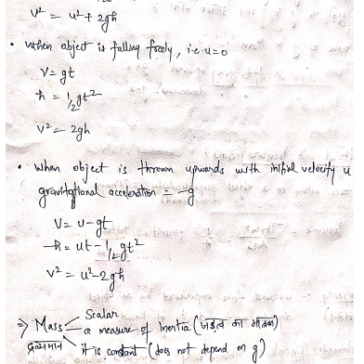 V² = u² + 2gh
• when object is falling freely, i.e. u=0
V = gt
h = 1/2 gt²
V² = 2gh
• when object is thrown upwards with initial velocity u
gravitational acceleration = -g
V = u - gt
h = ut - 1/2 gt²
V² = u² - 2gh
Scalar
⇒ Mass a measure of Inertia (जड़त्व का मापक)
द्रव्यमान it is constant (does not depend on g)